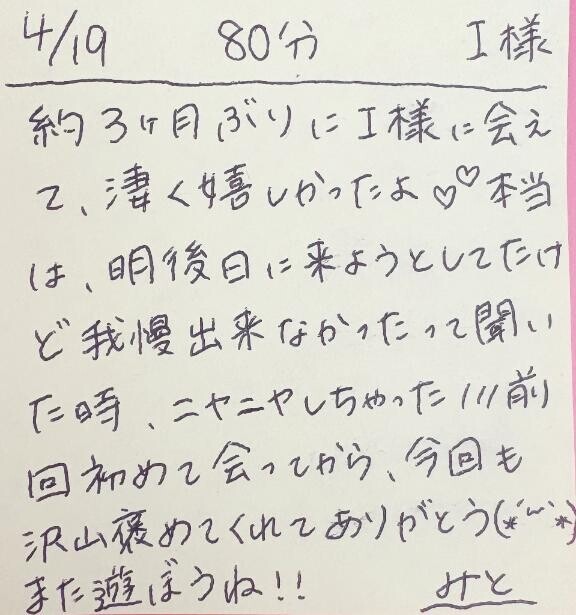 4/19 80分 I様
約3ヶ月ぶりにI様に会え
て、凄く嬉しかったよ♡♡本当
は、明後日に来ようとしてたけ
ど我慢出来なかったって聞い
た時、ニヤニヤしちゃった///前
回初めて会ってから、今回も
沢山褒めてくれてありがとう(*´﹏`*)
また遊ぼうね!!
みと